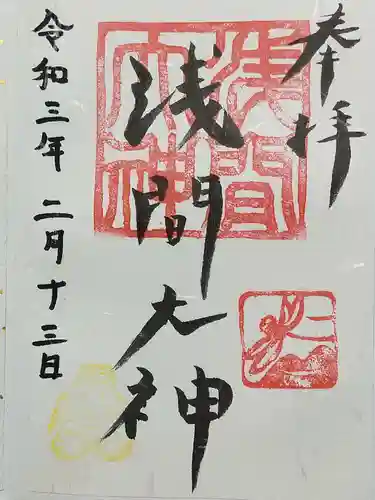 奉拝
浅間大神
令和三年 二月十三日
浅間大神